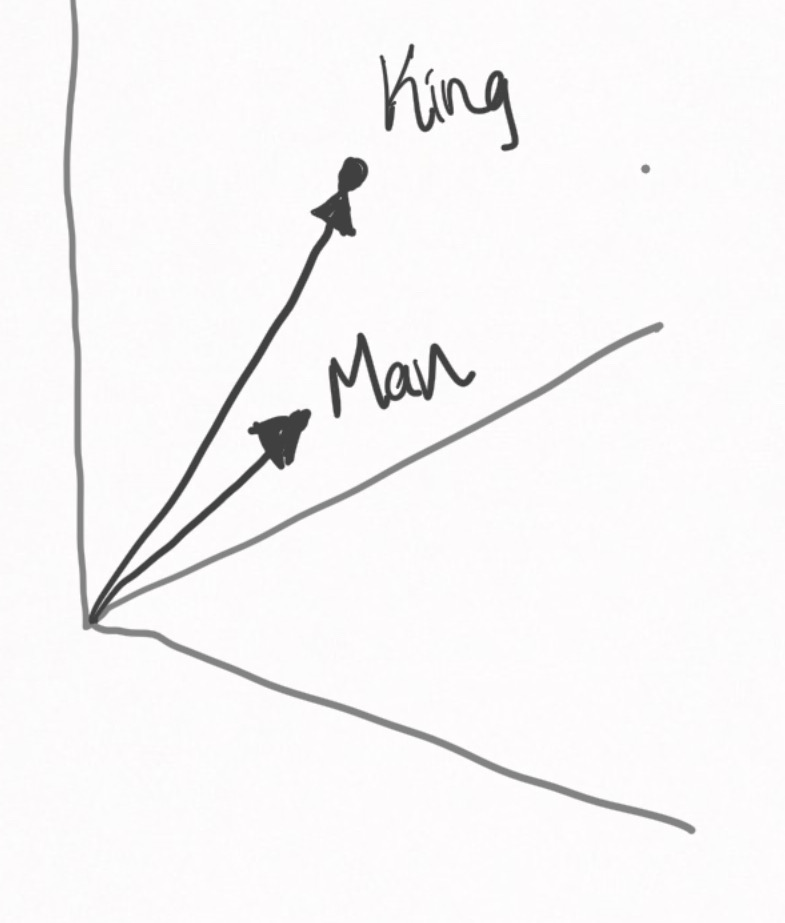 King
Man